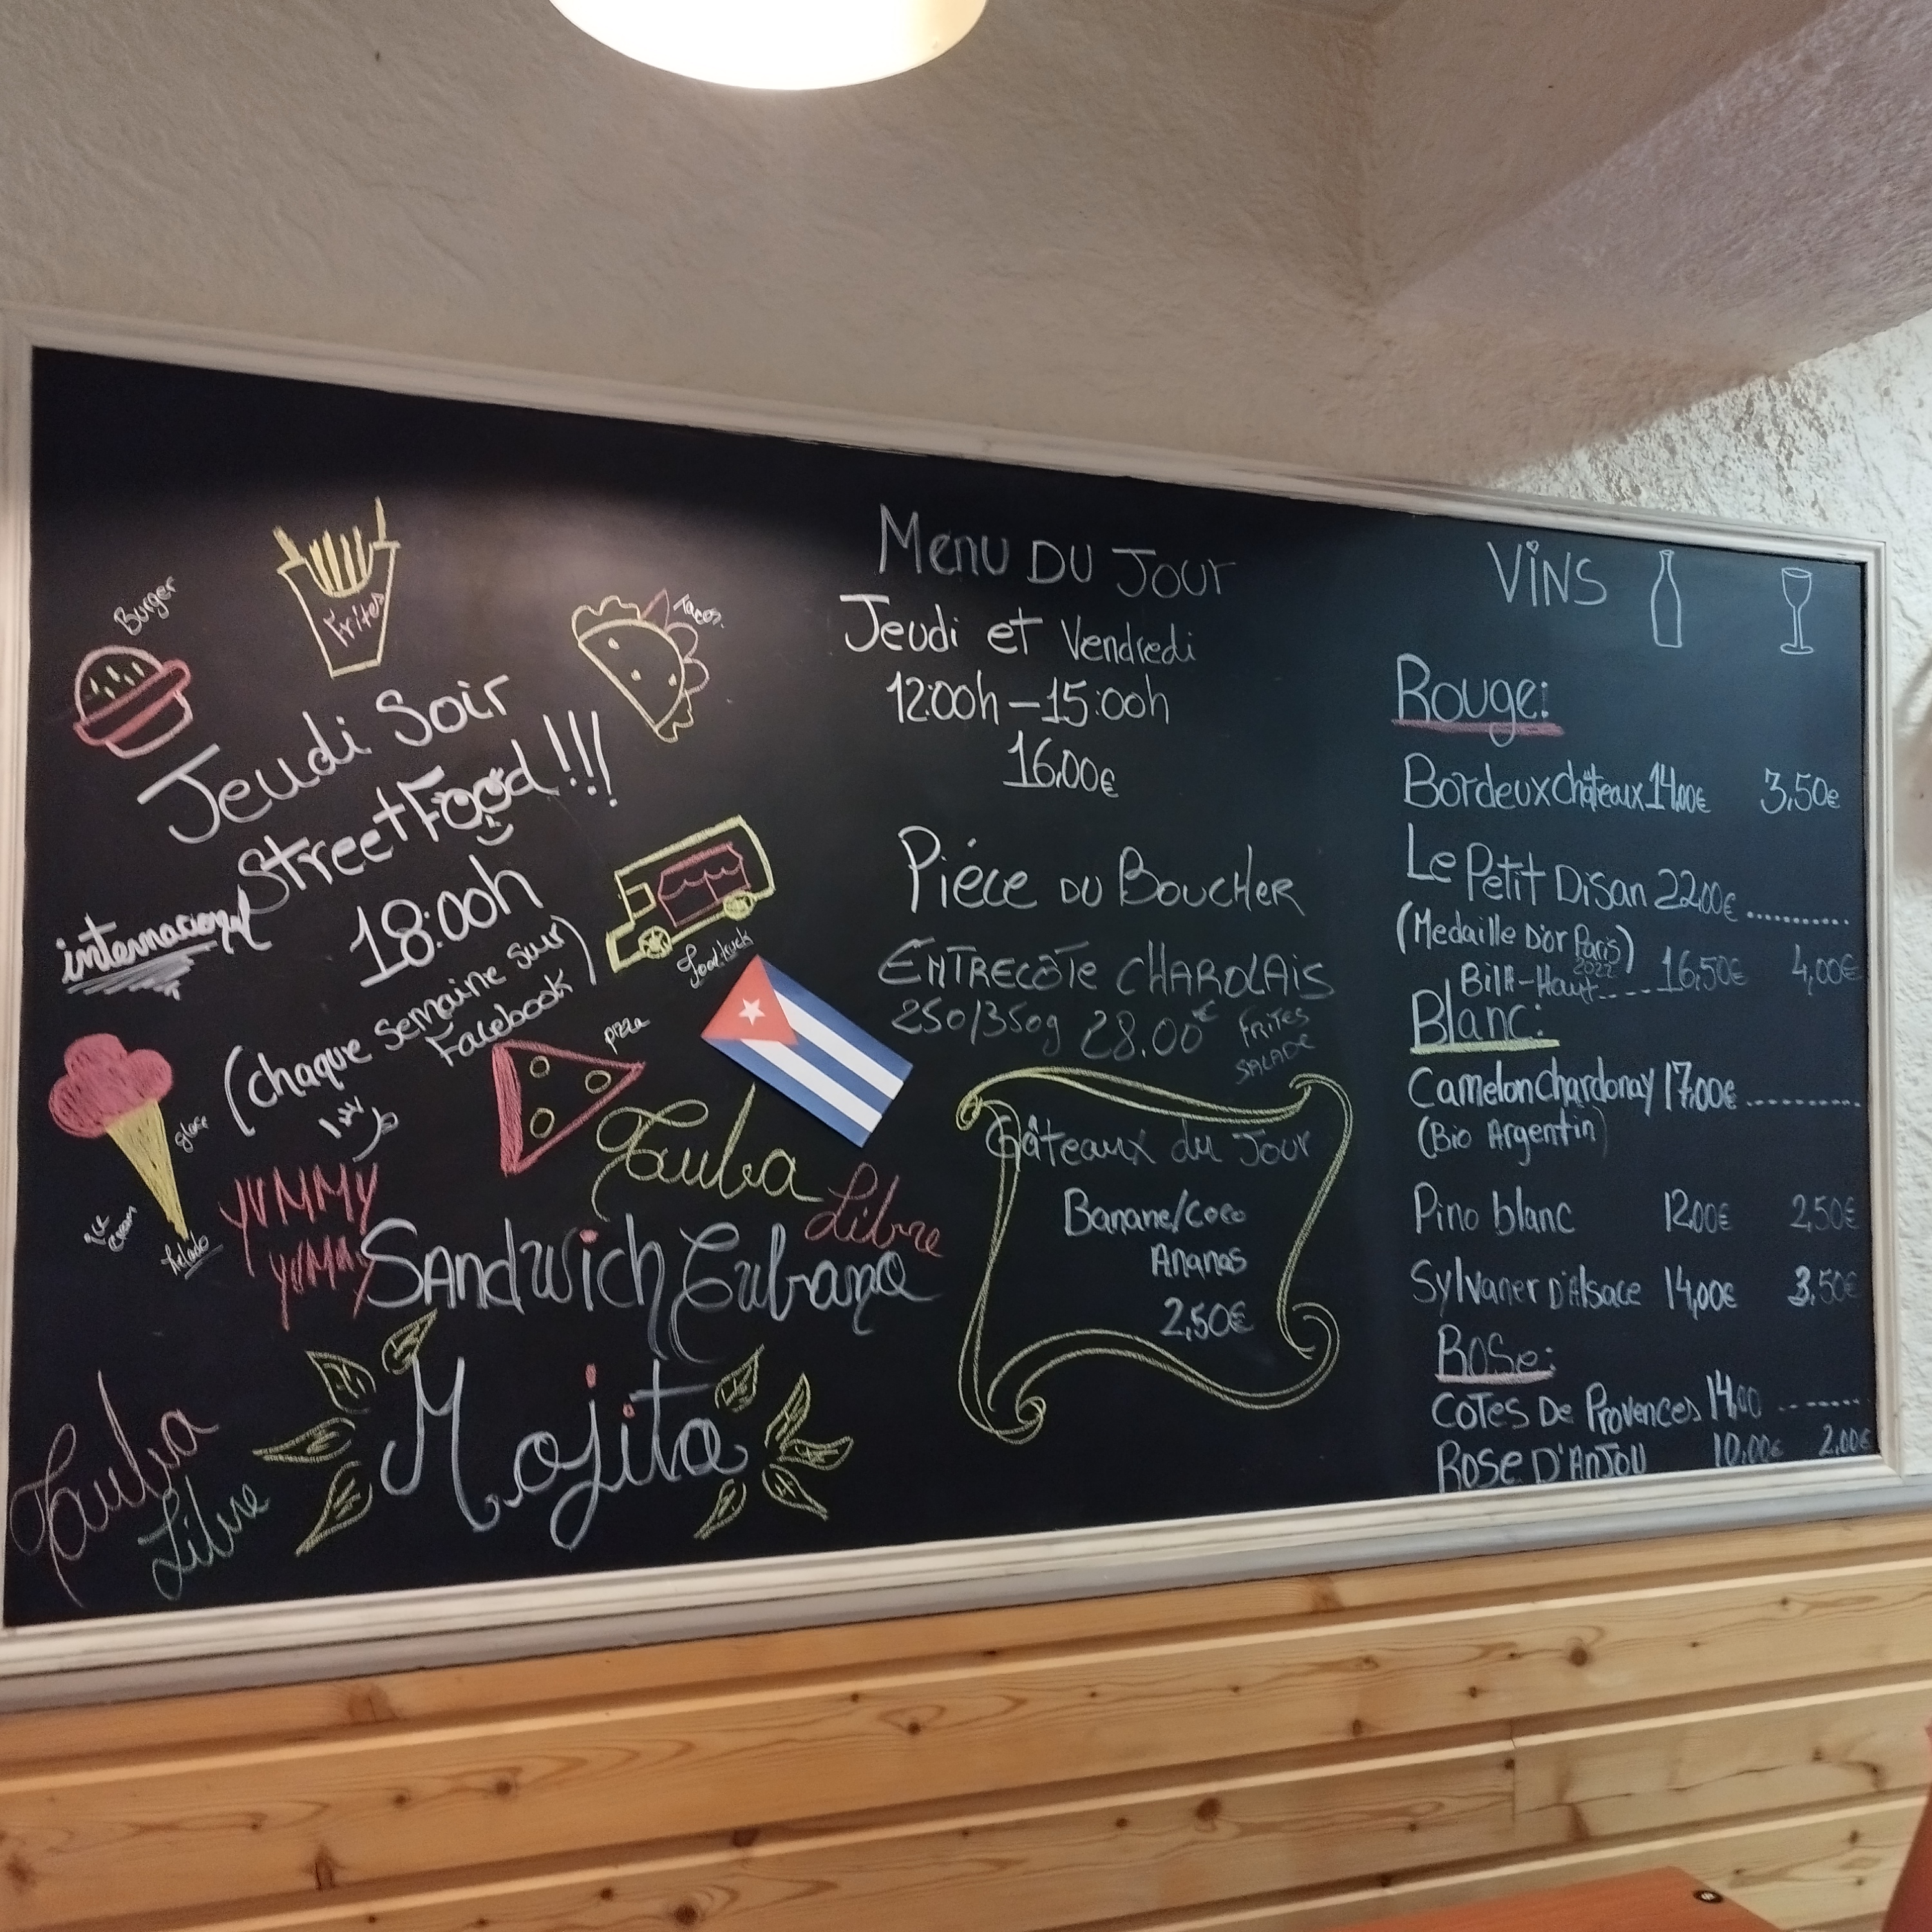 Burger
Frites
Tacos
Jeudi Soir
Street Food!!!
internacional
18:00h
Food-truck
(chaque semaine sur
Facebook)
pizza
glace
ice
cream
helado
YUMMY
YUMMY
Libre
Sandwich Cubano
Mojito
Libre
Menu DU Jour
Jeudi et Vendredi
12:00h-15:00h
16.00€
Piéce DU BoucHer
ENTRECÔTE CHAROLAIS
250/350g 28.00€ FRITES
SALADE
Gâteaux du Jour
Banane/Coco
Ananas
2,50€
ViNS
Rouge:
Bordeux châteaux 14,00€ 3,50€
Le Petit Disan 22,00€..........
(Medaille D'or Paris)
2022
Bilà-Haut....16,50€ 4,00€
Blanc:
Camelon chardonay 17,00€..........
(Bio Argentin)
Pino blanc 12,00€ 2,50€
Sylvaner D'Alsace 14,00€ 3,50€
Rose:
COTES De Provences 14,00 .......
Rose D'ANJOU 10,00€ 2,00€